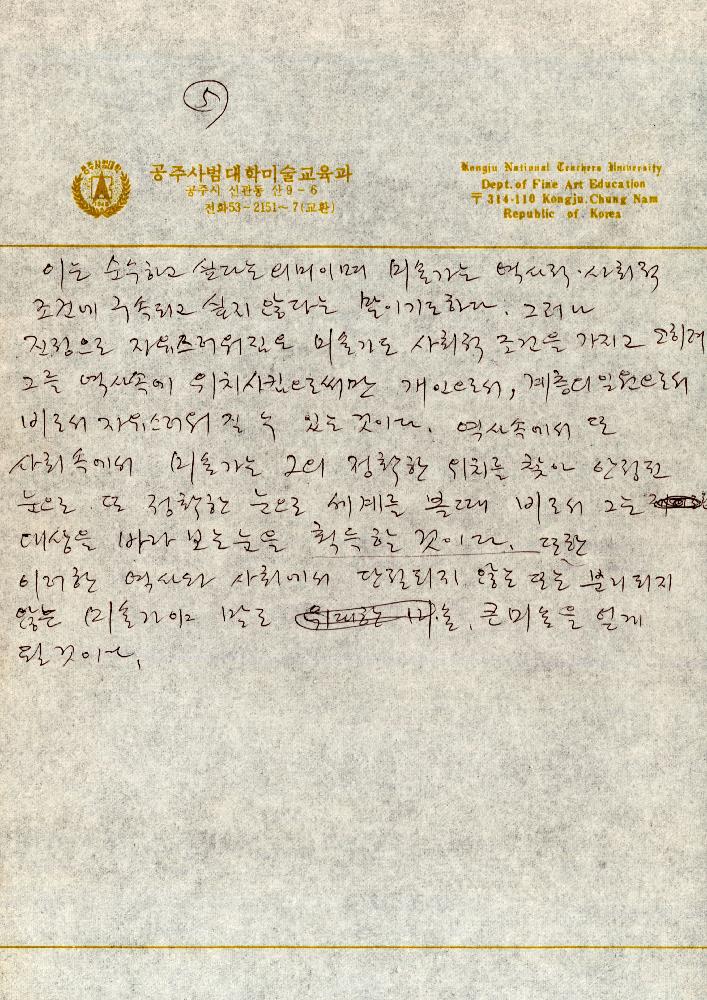 5
공주사범대학미술교육과
공주시 신관동 산9-6
전화53-2151~7(교환)
Kongju National Teachers University
Dept. of Fine Art Education
〒314-110 Kongju. Chung Nam
Republic of. Korea
이는 순수하고 싶다는 의미이며 미술가는 역사적·사회적
조건에 구속되고 싶지 않다는 말이기도하다. 그러나
진정으로 자유스러워짐은 미술가도 사회적 조건을 가지고 오히려
그를 역사속에 위치시킴으로써만 개인으로서, 계층의 일원으로서
비로서 자유스러워 질 수 있는 것이다. 역사속에서 또
사회속에서 미술가는 그의 정확한 위치를 찾아 안정된
눈으로 또 정확한 눈으로 세계를 볼때 비로서 그는
대상을 바라보는 눈을 획득할 것이다. 또한
이러한 역사와 사회에서 단절되지 않고 또는 분리되지
않는 미술가야 말로 큰미술을 얻게
될 것이다.